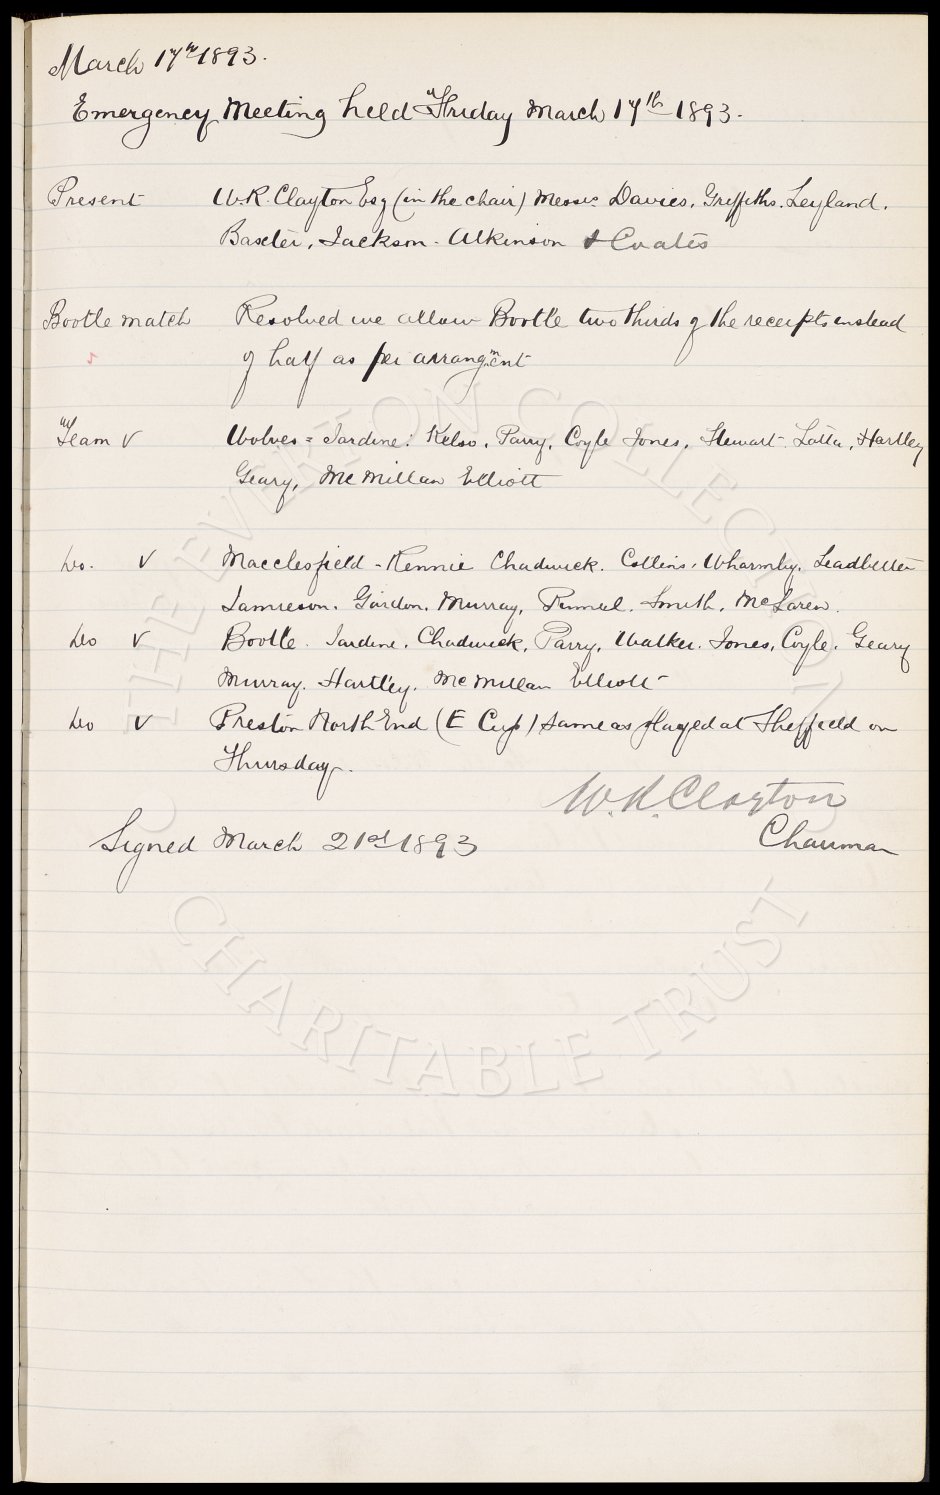 March 17th 1893.
Emergency Meeting held Friday March 17th 1893.
Present W.R. Clayton Esq (in the chair) Messrs Davies, Griffiths, Leyland,
Baxter, Jackson - Atkinson & Coates
Bootle match Resolved we allow Bootle two thirds of the receipts instead
of half as per arrangment
Team V Wolves = Jardine: Kelso, Parry, Coyle Jones, Stewart - Latta, Hartley
Geary, McMillan Elliott
Do. V Macclesfield - Rennie Chadwick. Collins, Wharmby, Leadbetter
Jamieson. Gordon, Murray, Smith, McLaren.
Do V Bootle. Jardine, Chadwick, Parry, Walker. Jones, Coyle. Geary
Murray. Hartley, McMillan Elliott
Do V Preston North End (E Cup) same as played at Sheffield on
Thursday.
W.R. Clayton
Signed March 21st 1893 Chairman
© THE EVERTON COLLECTION
CHARITABLE TRUST